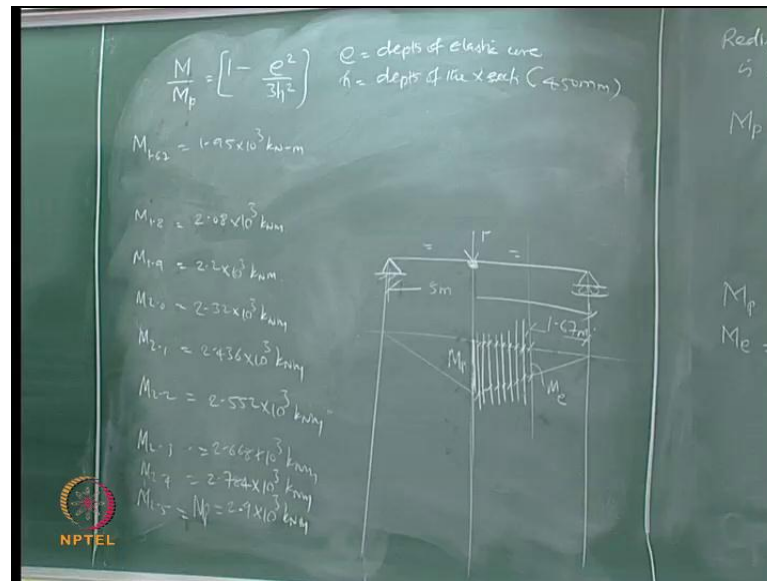 M/Mp = [1 - e²/3h²]
e = depth of elastic core
h = depth of the x sech (450mm)
M1.62 = 1.95×10³ kN-m
M1.8 = 2.08×10³ kNm
M1.9 = 2.2×10³ kNm
M2.0 = 2.32×10³ kNm
M2.1 = 2.436×10³ kNm
M2.2 = 2.552×10³ kNm
M2.3 = 2.668×10³ kNm
M2.4 = 2.784×10³ kNm
M2.5 = Mp = 2.9×10³ kNm
P
= =
5m
1.67m
Mp
Me
Redi
is
Mp
Mp
Me =
NPTEL